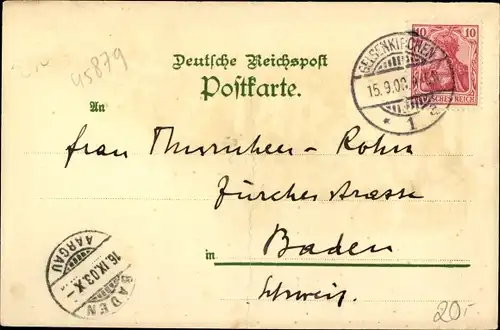 45879
Deutsche Reichspost
Postkarte.
An
Frau Thurnheer-Rohn
Zürcherstrasse
in Baden
Schweiz.
10
DEUTSCHES REICH
GELSENKIRCHEN
15.9.03.
* 1
AARGAU
16.IX.03.X
BADEN
20.-